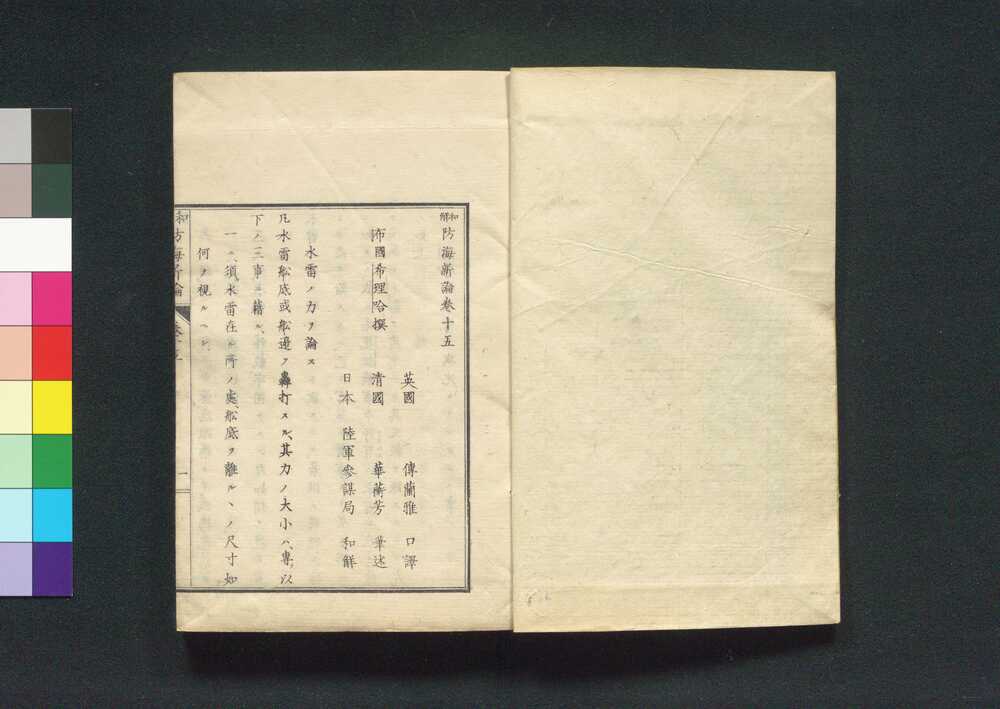 和解 防海新論卷十五
布國希理哈撰
英國 傅蘭雅 口譯
清國 華蘅芳 筆述
日本 陸軍參謀局 和解
水雷ノ力ヲ論ス
凡水雷舩底或舩邊ヲ轟打スル、其力ノ大小ハ、專以
下ノ三事ニ藉ル、
一ニ、須水雷在ル所ノ處、舩底ヲ離ルヽノ尺寸如
何ヲ視ルヘシ
和 防海新論
一